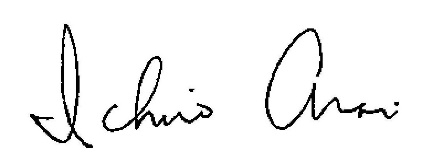 Ichiro Arai